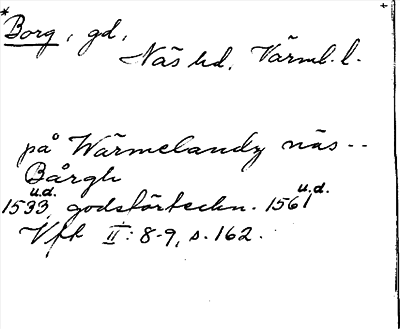 *
Borg, gd,
Näs hd. Värml. l.
på Wärmelandz näs --
Bårgh
u.d. u.d.
1533, godsförteckn. 1561
Vfr II: 8-9, s. 162.